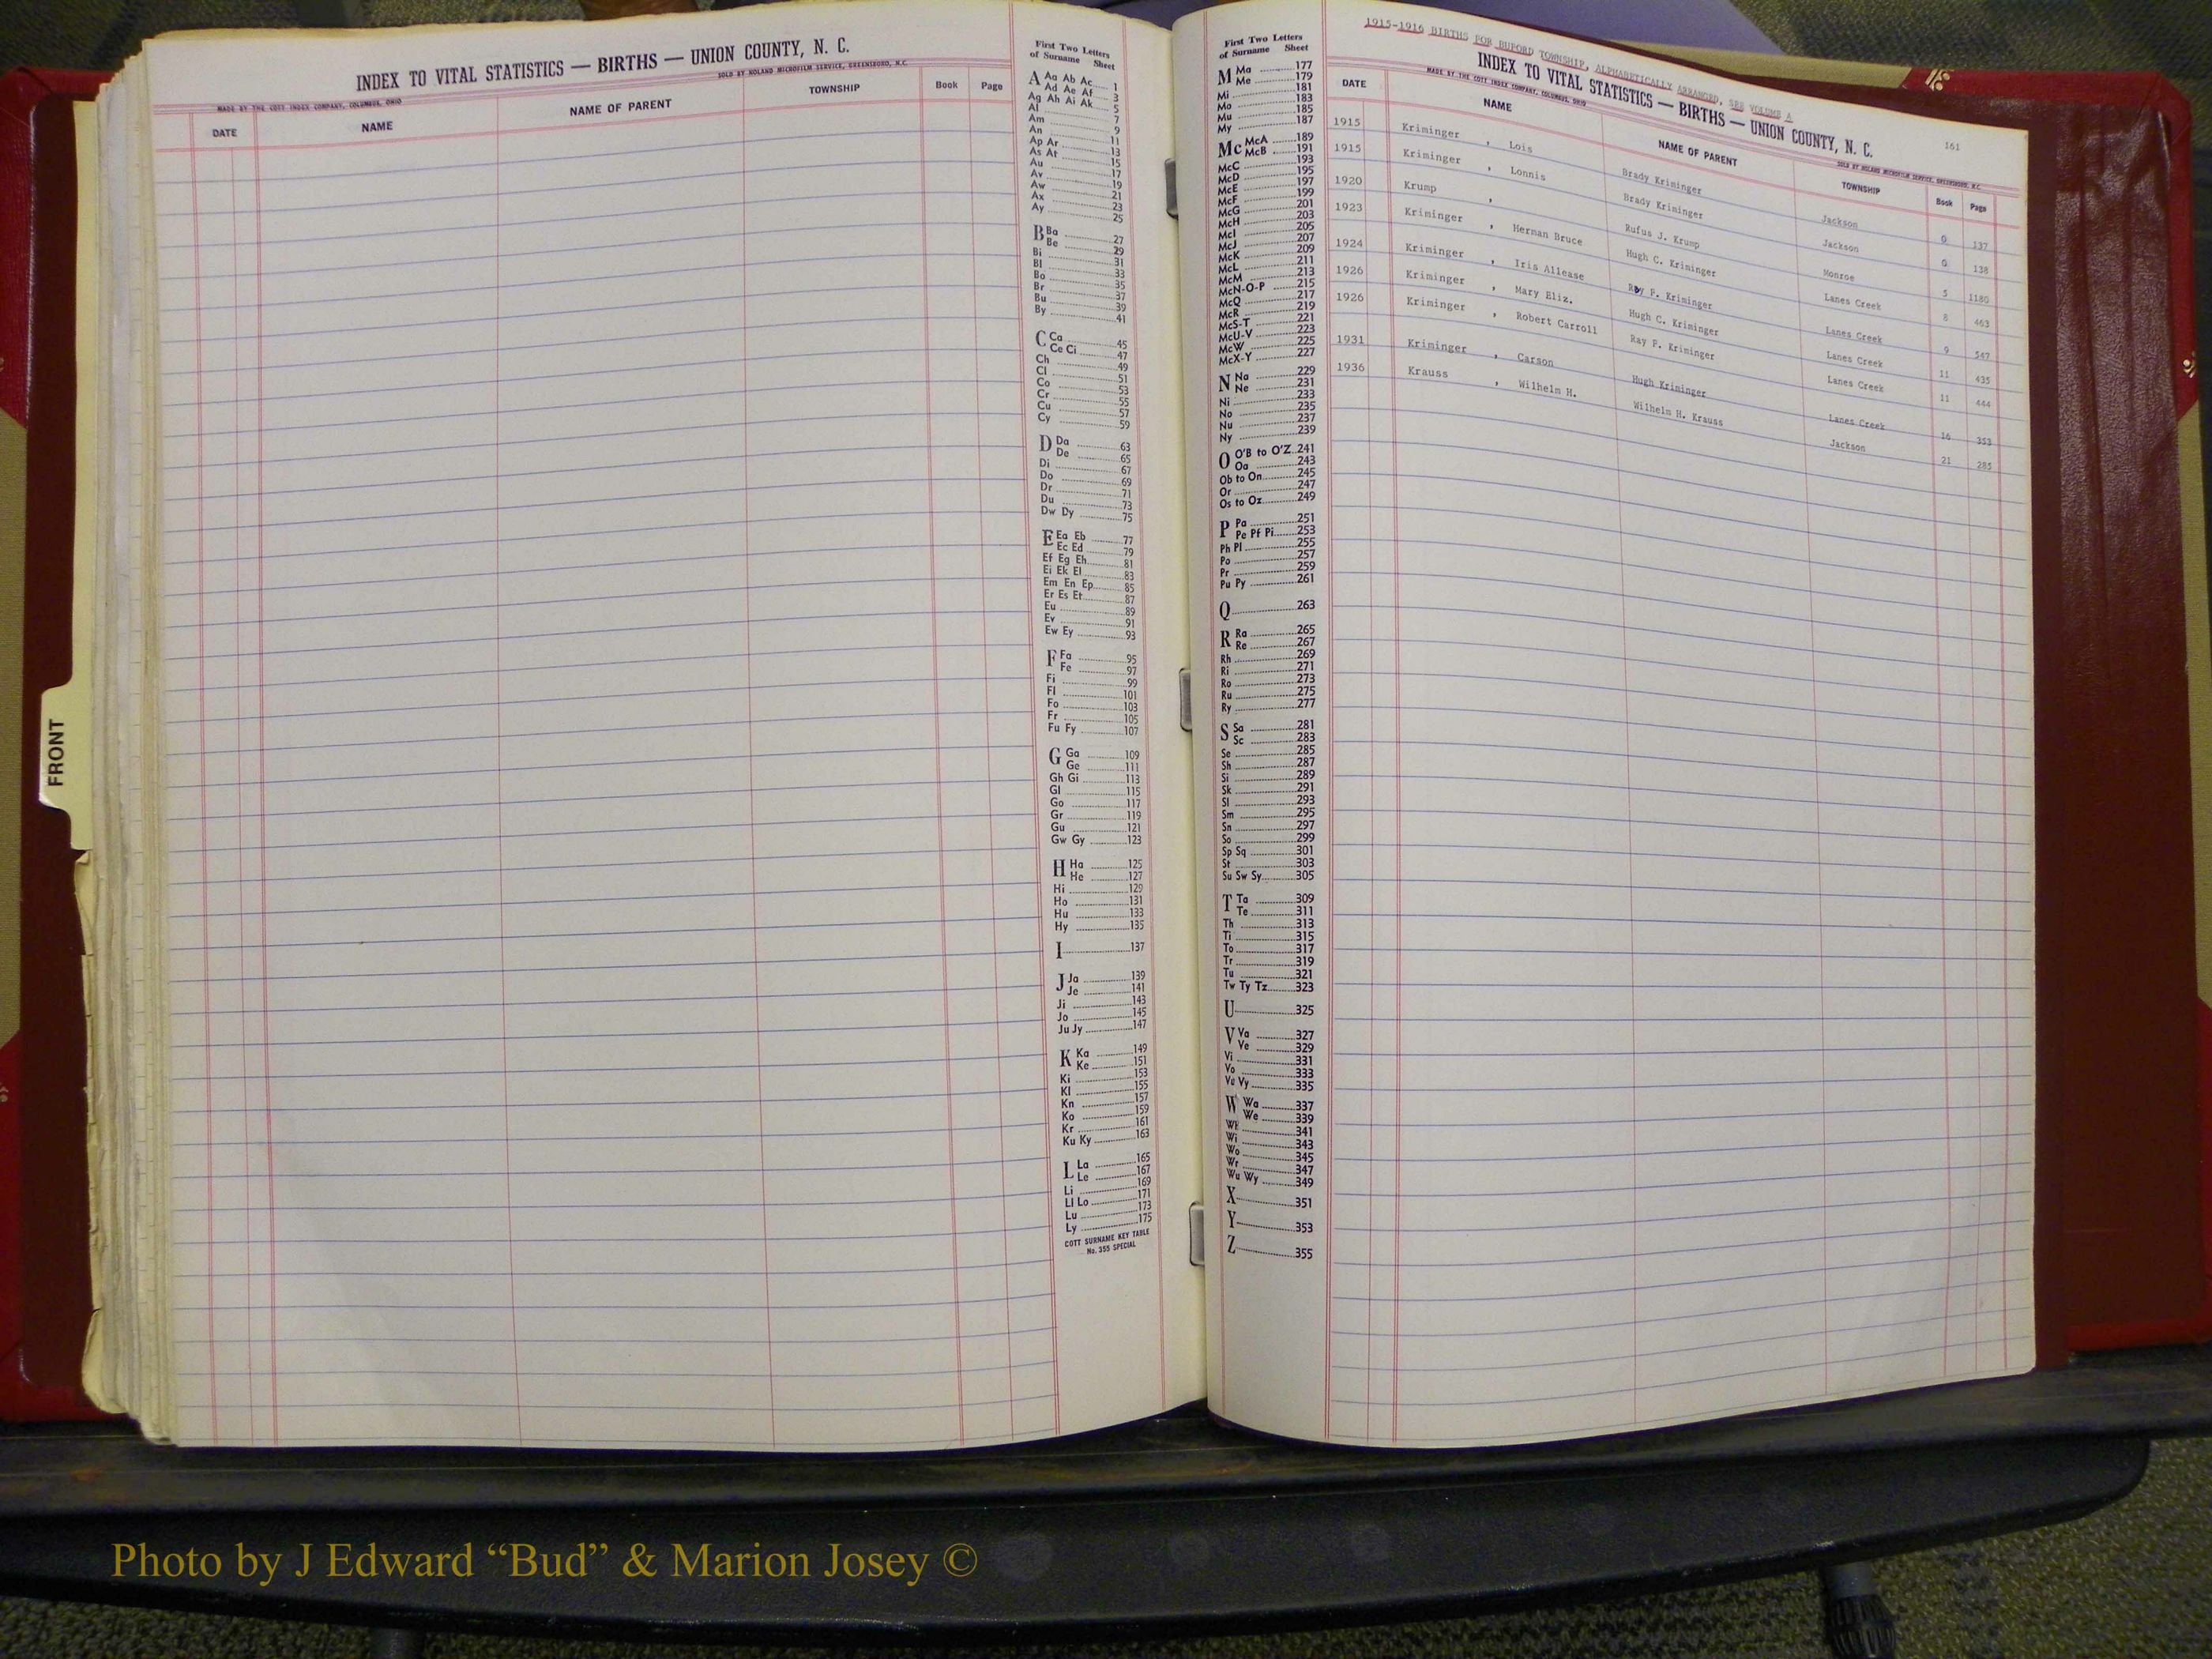 INDEX TO VITAL STATISTICS — BIRTHS — UNION COUNTY, N. C.
MADE BY THE COTT INDEX COMPANY, COLUMBUS, OHIO
SOLD BY NOLAND MICROFILM SERVICE, GREENSBORO, N.C.
DATE NAME NAME OF PARENT TOWNSHIP Book Page
FRONT
First Two Letters
of Surname Sheet
A Aa Ab Ac 1
Ad Ae Af 3
Ag Ah Ai Ak 5
Al 7
Am 9
An 11
Ap Ar 13
As At 15
Au 17
Av 19
Aw 21
Ax 23
Ay 25
B Ba 27
Be 29
Bi 31
Bl 33
Bo 35
Br 37
Bu 39
By 41
C Ca 45
Ce Ci 47
Ch 49
Cl 51
Co 53
Cr 55
Cu 57
Cy 59
D Da 63
De 65
Di 67
Do 69
Dr 71
Du 73
Dw Dy 75
E Ea Eb 77
Ec Ed 79
Ef Eg Eh 81
Ei Ek El 83
Em En Ep 85
Er Es Et 87
Eu 89
Ev 91
Ew Ey 93
F Fa 95
Fe 97
Fi 99
Fl 101
Fo 103
Fr 105
Fu Fy 107
G Ga 109
Ge 111
Gh Gi 113
Gl 115
Go 117
Gr 119
Gu 121
Gw Gy 123
H Ha 125
He 127
Hi 129
Ho 131
Hu 133
Hy 135
I 137
J Ja 139
Je 141
Ji 143
Jo 145
Ju Jy 147
K Ka 149
Ke 151
Ki 153
Kl 155
Kn 157
Ko 159
Kr 161
Ku Ky 163
L La 165
Le 167
Li 169
Ll Lo 171
Lu 173
Ly 175
COTT SURNAME KEY TABLE
No. 355 SPECIAL
First Two Letters
of Surname Sheet
M Ma 177
Me 179
Mi 181
Mo 183
Mu 185
My 187
Mc McA 189
McB 191
McC 193
McD 195
McE 197
McF 199
McG 201
McH 203
McI 205
McJ 207
McK 209
McL 211
McM 213
McN-O-P 215
McQ 217
McR 219
McS-T 221
McU-V 223
McW 225
McX-Y 227
N Na 229
Ne 231
Ni 233
No 235
Nu 237
Ny 239
O O'B to O'Z 241
Oa 243
Ob to On 245
Or 247
Os to Oz 249
P Pa 251
Pe Pf Pi 253
Ph Pl 255
Po 257
Pr 259
Pu Py 261
Q 263
R Ra 265
Re 267
Rh 269
Ri 271
Ro 273
Ru 275
Ry 277
S Sa 281
Sc 283
Se 285
Sh 287
Si 289
Sk 291
Sl 293
Sm 295
Sn 297
So 299
Sp Sq 301
St 303
Su Sw Sy 305
T Ta 309
Te 311
Th 313
Ti 315
To 317
Tr 319
Tu 321
Tw Ty Tz 323
U 325
V Va 327
Ve 329
Vi 331
Vo 333
Vu Vy 335
W Wa 337
We 339
Wh 341
Wi 343
Wo 345
Wr 347
Wu Wy 349
X 351
Y 353
Z 355
1915-1916 BIRTHS FOR BUFORD TOWNSHIP, ALPHABETICALLY ARRANGED, SEE VOLUME A
INDEX TO VITAL STATISTICS — BIRTHS — UNION COUNTY, N. C.
161
MADE BY THE COTT INDEX COMPANY, COLUMBUS, OHIO
SOLD BY NOLAND MICROFILM SERVICE, GREENSBORO, N.C.
DATE NAME NAME OF PARENT TOWNSHIP Book Page
1915 Kriminger , Lois Brady Kriminger Jackson 0 137
1915 Kriminger , Lonnis Brady Kriminger Jackson 0 138
1920 Krump , Rufus J. Krump Monroe 5 1180
1923 Kriminger , Herman Bruce Hugh C. Kriminger Lanes Creek 8 463
1924 Kriminger , Iris Allease Ray P. Kriminger Lanes Creek 9 547
1926 Kriminger , Mary Eliz. Hugh C. Kriminger Lanes Creek 11 435
1926 Kriminger , Robert Carroll Ray P. Kriminger Lanes Creek 11 444
1931 Kriminger , Carson Hugh Kriminger Lanes Creek 16 353
1936 Krauss , Wilhelm H. Wilhelm H. Krauss Jackson 21 285
Photo by J Edward “Bud” & Marion Josey ©